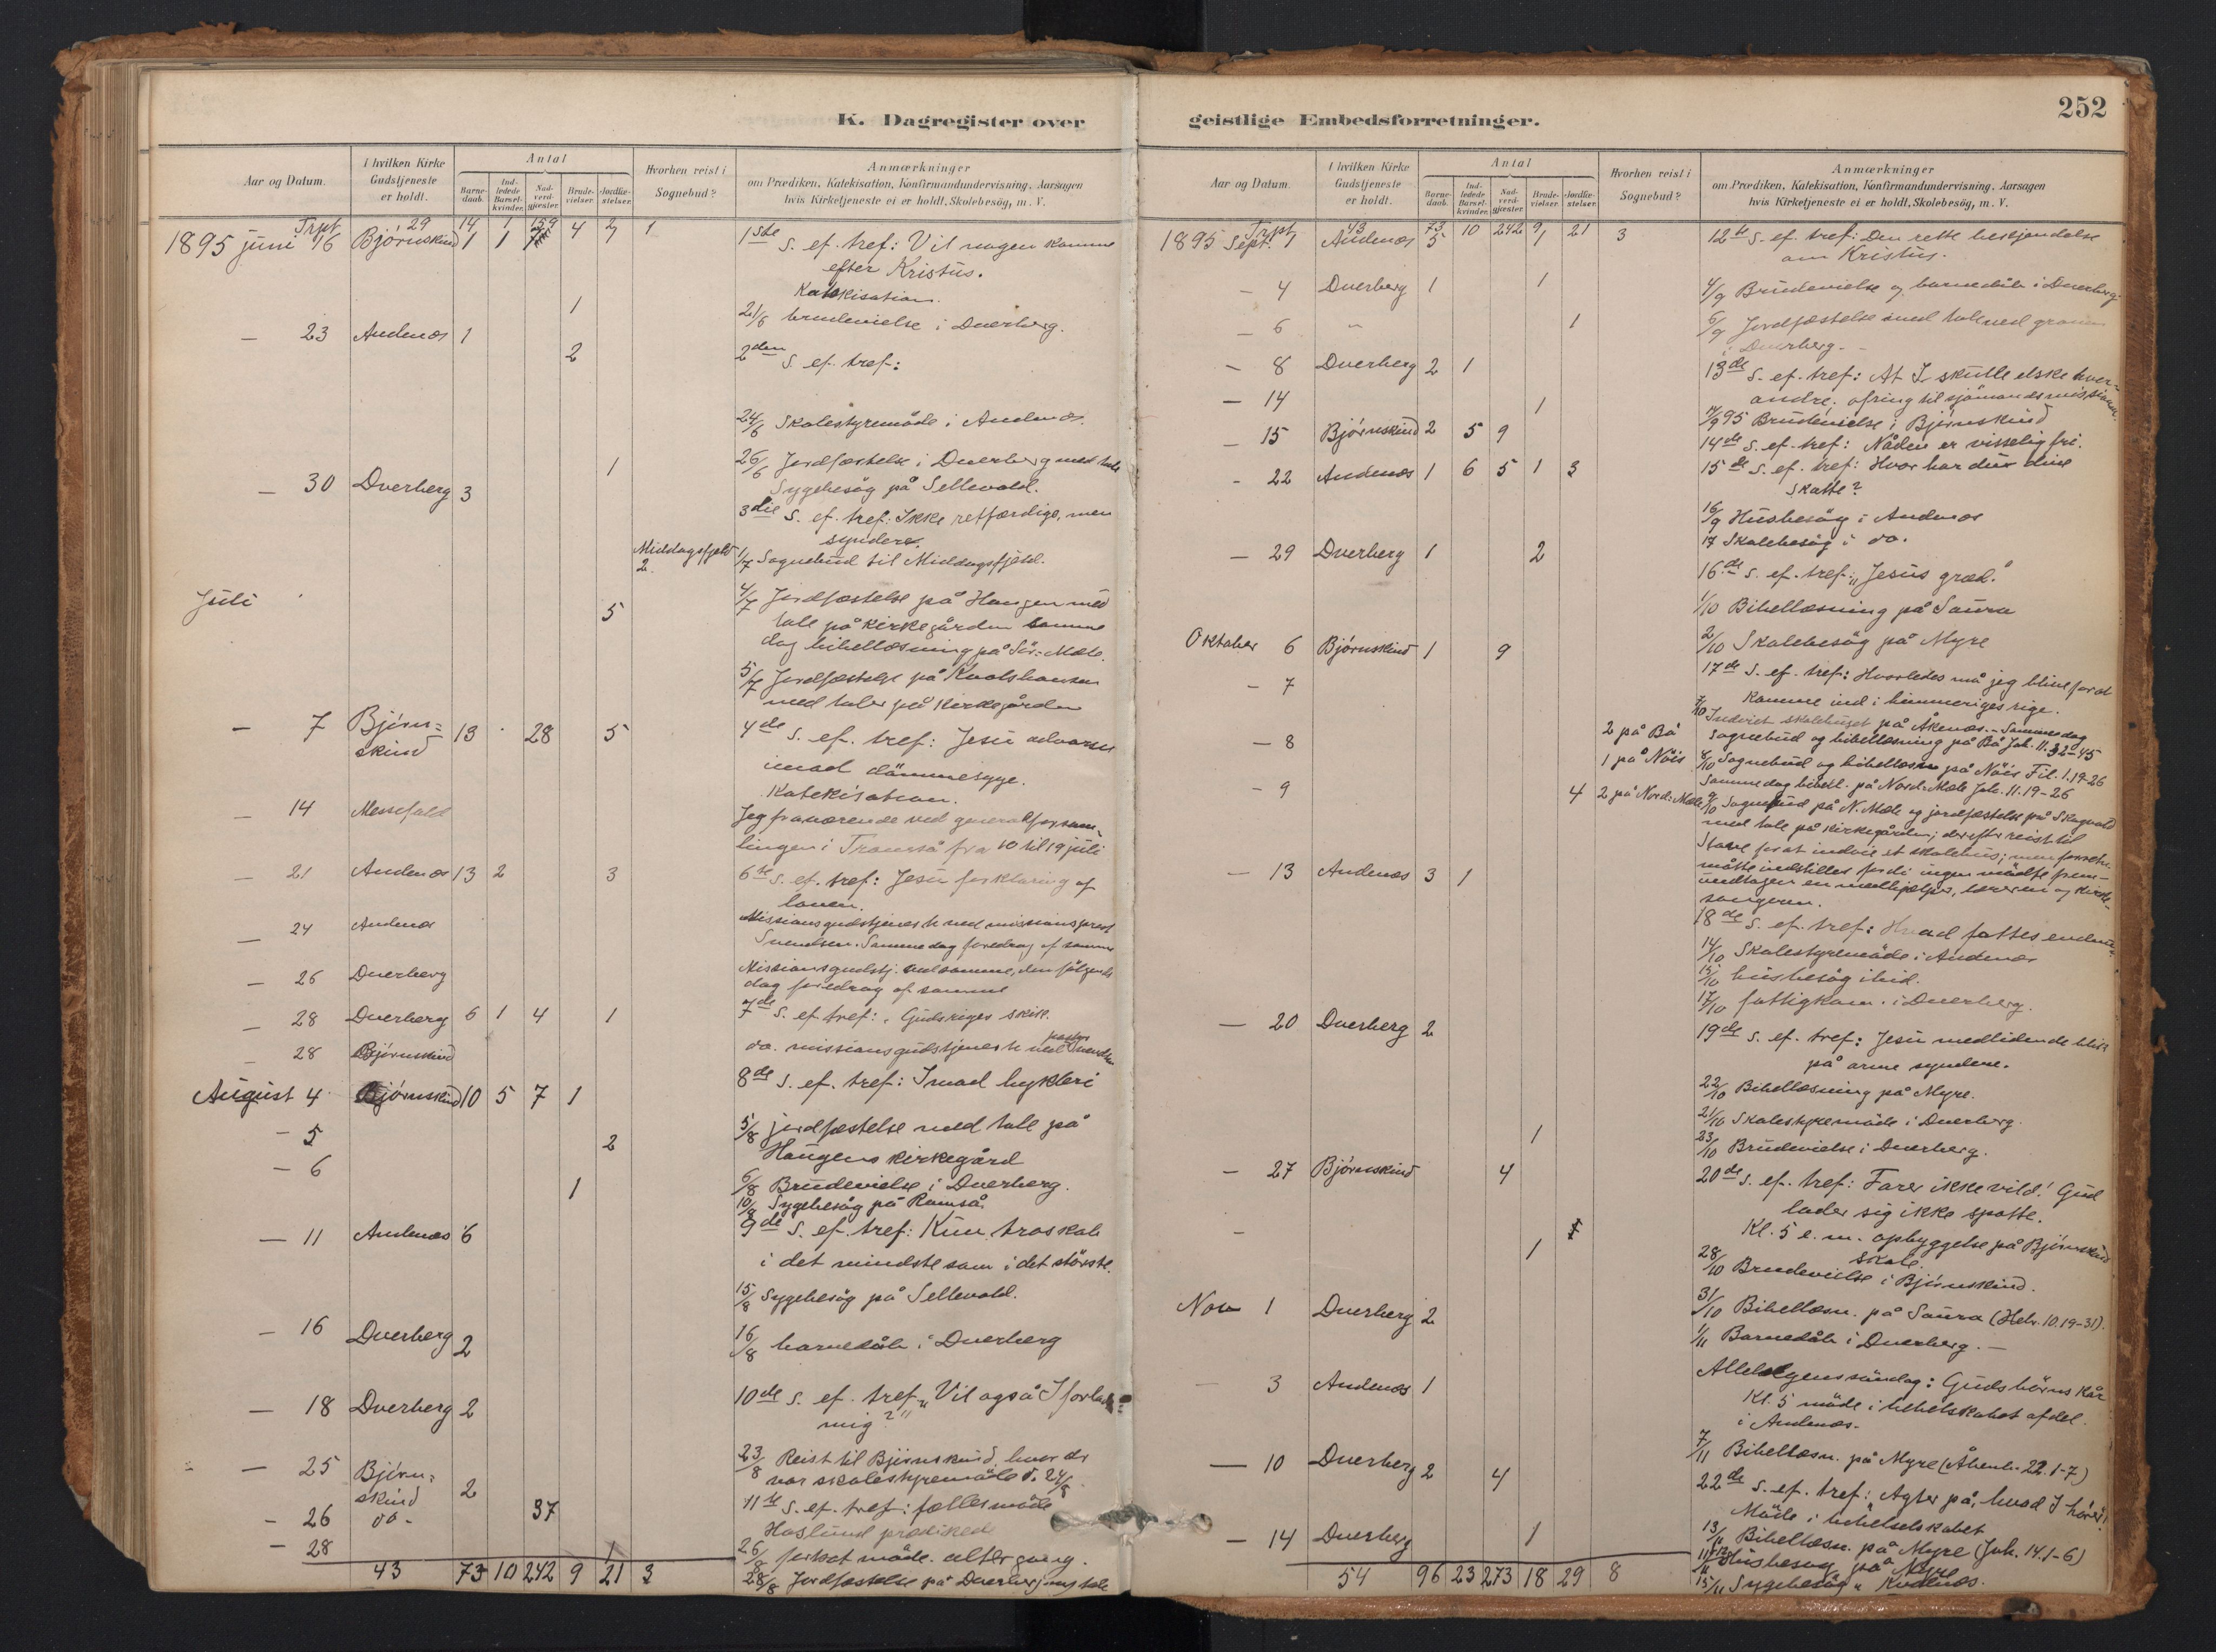 K. Dagregister over
Aar og Datum.
I hvilken Kirke Gudstjeneste er holdt.
Antal
Barne-daab.
Ind-ledede Barsel-kvinder.
Nad-verd-gjæster.
Brude-vielser.
Jordfæ-stelser.
Hvorhen reist i Sognebud?
Anmærkninger
om Prædiken, Katekisation, Konfirmandundervisning, Aarsagen
hvis Kirketjeneste ei er holdt, Skolebesög, m. V.
Trpt 29 14 1 159 4 2 1
1895 juni 16 Bjørnskind 1 1
1ste S. ef. tref: Vil nogen komme
efter Kristus.
Katekisation.
1 21/6 brudevielse i Dverberg.
— 23 Andenæs 1 2 2den S. ef. tref:
24/6 Skolestyremöde i Andenæs.
1 26/6 Jordfæstelse i Dverberg med tale
Sygebesög på Sellevold.
— 30 Dverberg 3 3die S. ef. tref: Ikke retfærdige, men
syndere.
Middagsfjeld 2 1/7 Sognebud til Middagsfjeld.
Juli 5 4/7 Jordfæstelse på Haugen med
tale på kirkegården samme
dag bibellæsning på Sör-Mæle.
5/7 Jordfæstelse på Kvalshausen
med taler på kirkegården
— 7 Bjørn-skind 13 28 5 4de S. ef. tref: Jesu advarsel
imod dömmesyge.
Katekisation.
— 14 Messefald Jeg fraværende ved generalforsam-
lingen i Tromsö fra 10 til 19 juli
— 21 Andenæs 13 2 3 6te S. ef. tref: Jesu forklaring af
loven.
— 24 Andenæs Missionsgudstjeneste ved missionsprest
Svendsen. Samme dag foredrag af samme
— 26 Dverberg Missionsgudstj. ved samme, den fölgende
dag foredrag af samme
— 28 Dverberg 6 1 4 1 7de S. ef. tref: Guds riges skik.
— 28 Bjørnskind do. missionsgudstjeneste ved pastor Svendsen
August 4 Bjørnskind 10 5 7 1 8de S. ef. tref: Imod hykleri
— 5 2 5/8 jordfæstelse med tale på
Haugens kirkegård
— 6 1 6/8 Brudevielse i Dverberg.
10/8 Sygebesög på Ramså.
— 11 Andenæs 6 9de S. ef. tref: Kun troskab
i det mindste som i det störste.
15/8 Sygebesög på Sellevold.
— 16 Dverberg 2 16/8 barnedåb i Dverberg
— 18 Dverberg 2 10de S. ef. tref. "Vil også I forlade
mig?"
— 25 Bjørn-skind 2 23/8 Reist til Bjørnskind, hvor der
var skolestyremöde d. 24/8.
11te S. ef. tref: fællesmöde
— 26 do- 37 Haslund prædikede
26/8 fortsat möde. altergang.
— 28 1 28/8 Jordfæstelse på Dverberg med tale
43 73 10 242 9 21 3
geistlige Embedsforretninger.
252
Aar og Datum.
I hvilken Kirke Gudstjeneste er holdt.
Antal
Barne-daab.
Ind-ledede Barsel-kvinder.
Nad-verd-gjæster.
Brude-vielser.
Jordfæ-stelser.
Hvorhen reist i Sognebud?
Anmærkninger
om Prædiken, Katekisation, Konfirmandundervisning, Aarsagen
hvis Kirketjeneste ei er holdt, Skolebesög, m. V.
Trpt 43 73 10 242 9 21 3
1895 Sept. 1 Andenæs 5 12te S. ef. tref: Den rette bekjendelse
om Kristus.
— 4 Dverberg 1 1 4/9 Brudevielse og barnedåb i Dverberg
— 6 " 1 6/9 Jordfæstelse med tale ved graven
i Dverberg.
— 8 Dverberg 2 1 13de S. ef. tref: At I skulle elske hver-
andre. ofring til sjömandsmissionen.
— 14 1 14/9 95 Brudevielse i Bjørnskind
— 15 Bjørnskind 2 5 9 14de S. ef. tref: Nåden er visselig fri.
— 22 Andenæs 1 6 5 1 3 15de S. ef. tref: Hvor har du dine
skatte?
16/9 Husbesög i Andenæs
17 Skolebesög i do.
— 29 Dverberg 1 2 16de S. ef. tref: "Jesus græd."
1/10 Bibellæsning på Saura
2/10 Skolebesög på Myre
Oktober 6 Bjørnskind 1 9 17de S. ef. tref: Hvorledes må jeg blive for at
komme ind i himmeriges rige.
— 7 2 på Bö 7/10 Indviet skolehuset på Åkenæs. — Samme dag
sognebud og bibellæsning på Bö Joh. 11. 32–45
— 8 1 på Nöis 8/10 Sognebud og bibellæsn. på Nöis Fil. 1. 19-26
samme dag bibell. på Nord-Mæle Joh. 11. 19-26
— 9 4 2 på Nord-Mæle 9/10 Sognebud på N. Mæle og jordfæstelse på Skogvold
med tale på kirkegården; derefter reist til
for at indvie et skolehus; men forretn.
måtte indstilles fordi ingen mödte frem-
undtagen en medhjelper, læreren og kirke-
sangeren.
— 13 Andenæs 3 1 18de S. ef. tref: Hvad fattes endnu
14/10 Skolestyremöde i Andenæs
15/10 husbesög ibid.
17/10 fattigkom. i Dverberg.
— 20 Dverberg 2 19de S. ef. tref: Jesu medlidende blik
på arme syndere.
22/10 Bibellæsning på Myre.
21/10 Skolestyremöde i Dverberg.
1 23/10 Brudevielse i Dverberg.
— 27 Bjørnskind 4 20de S. ef. tref: Farer ikke vild! Gud
lader sig ikke spotte.
Kl. 5 e. m. opbyggelse på Bjørnskind
skole.
1 28/10 Brudevielse i Bjørnskind.
31/10 Bibellæsn. på Saura (Hebr. 10. 19-31).
Nov 1 Dverberg 2 1/11 Barnedåb i Dverberg. —
— 3 Andenæs 1 Allehelgens söndag: Guds börns kår
Kl. 5 möde i bibelskabet afdel.
i Andenæs.
7/11 Bibellæsn. på Myre (Åbenb. 22. 1-7)
— 10 Dverberg 2 4 22de S. ef. tref: "Agter på, hvad I hører!"
Möde i bibelselskabet
13/11 Bibellæsn. på Myre (Joh. 14. 1-6)
— 14 Dverberg 1 Husbesög på Myre
15/11 Sygebesög " Kvalnæs.
54 96 23 273 18 29 8